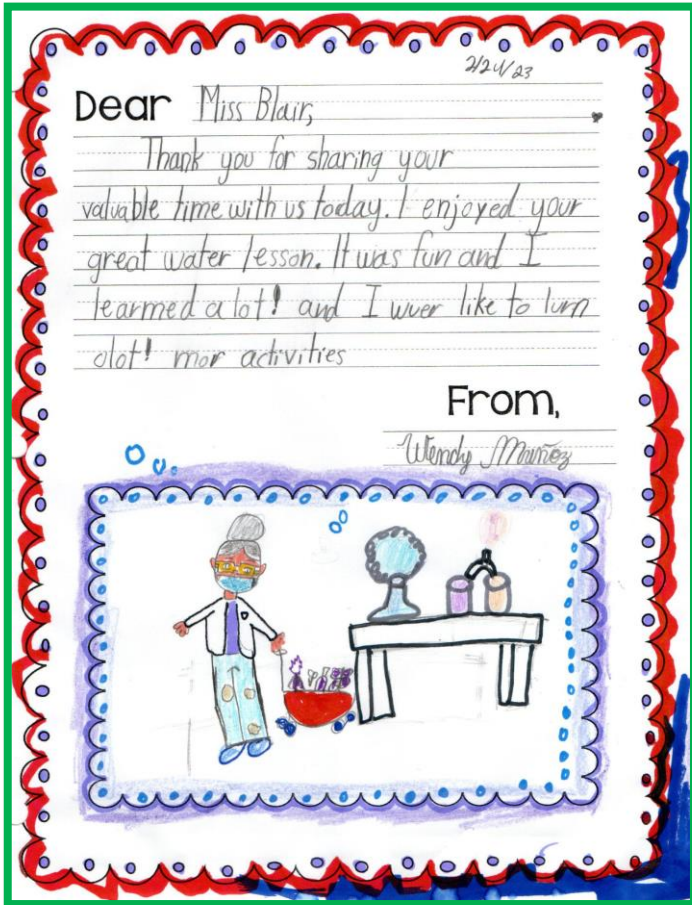 2/24/23
Dear Miss Blair,
Thank you for sharing your
valuable time with us today. I enjoyed your
great water lesson. It was fun and I
learmed a lot! and I wuer like to lurn
olot! mor activities
From,
Wendy Muñoz